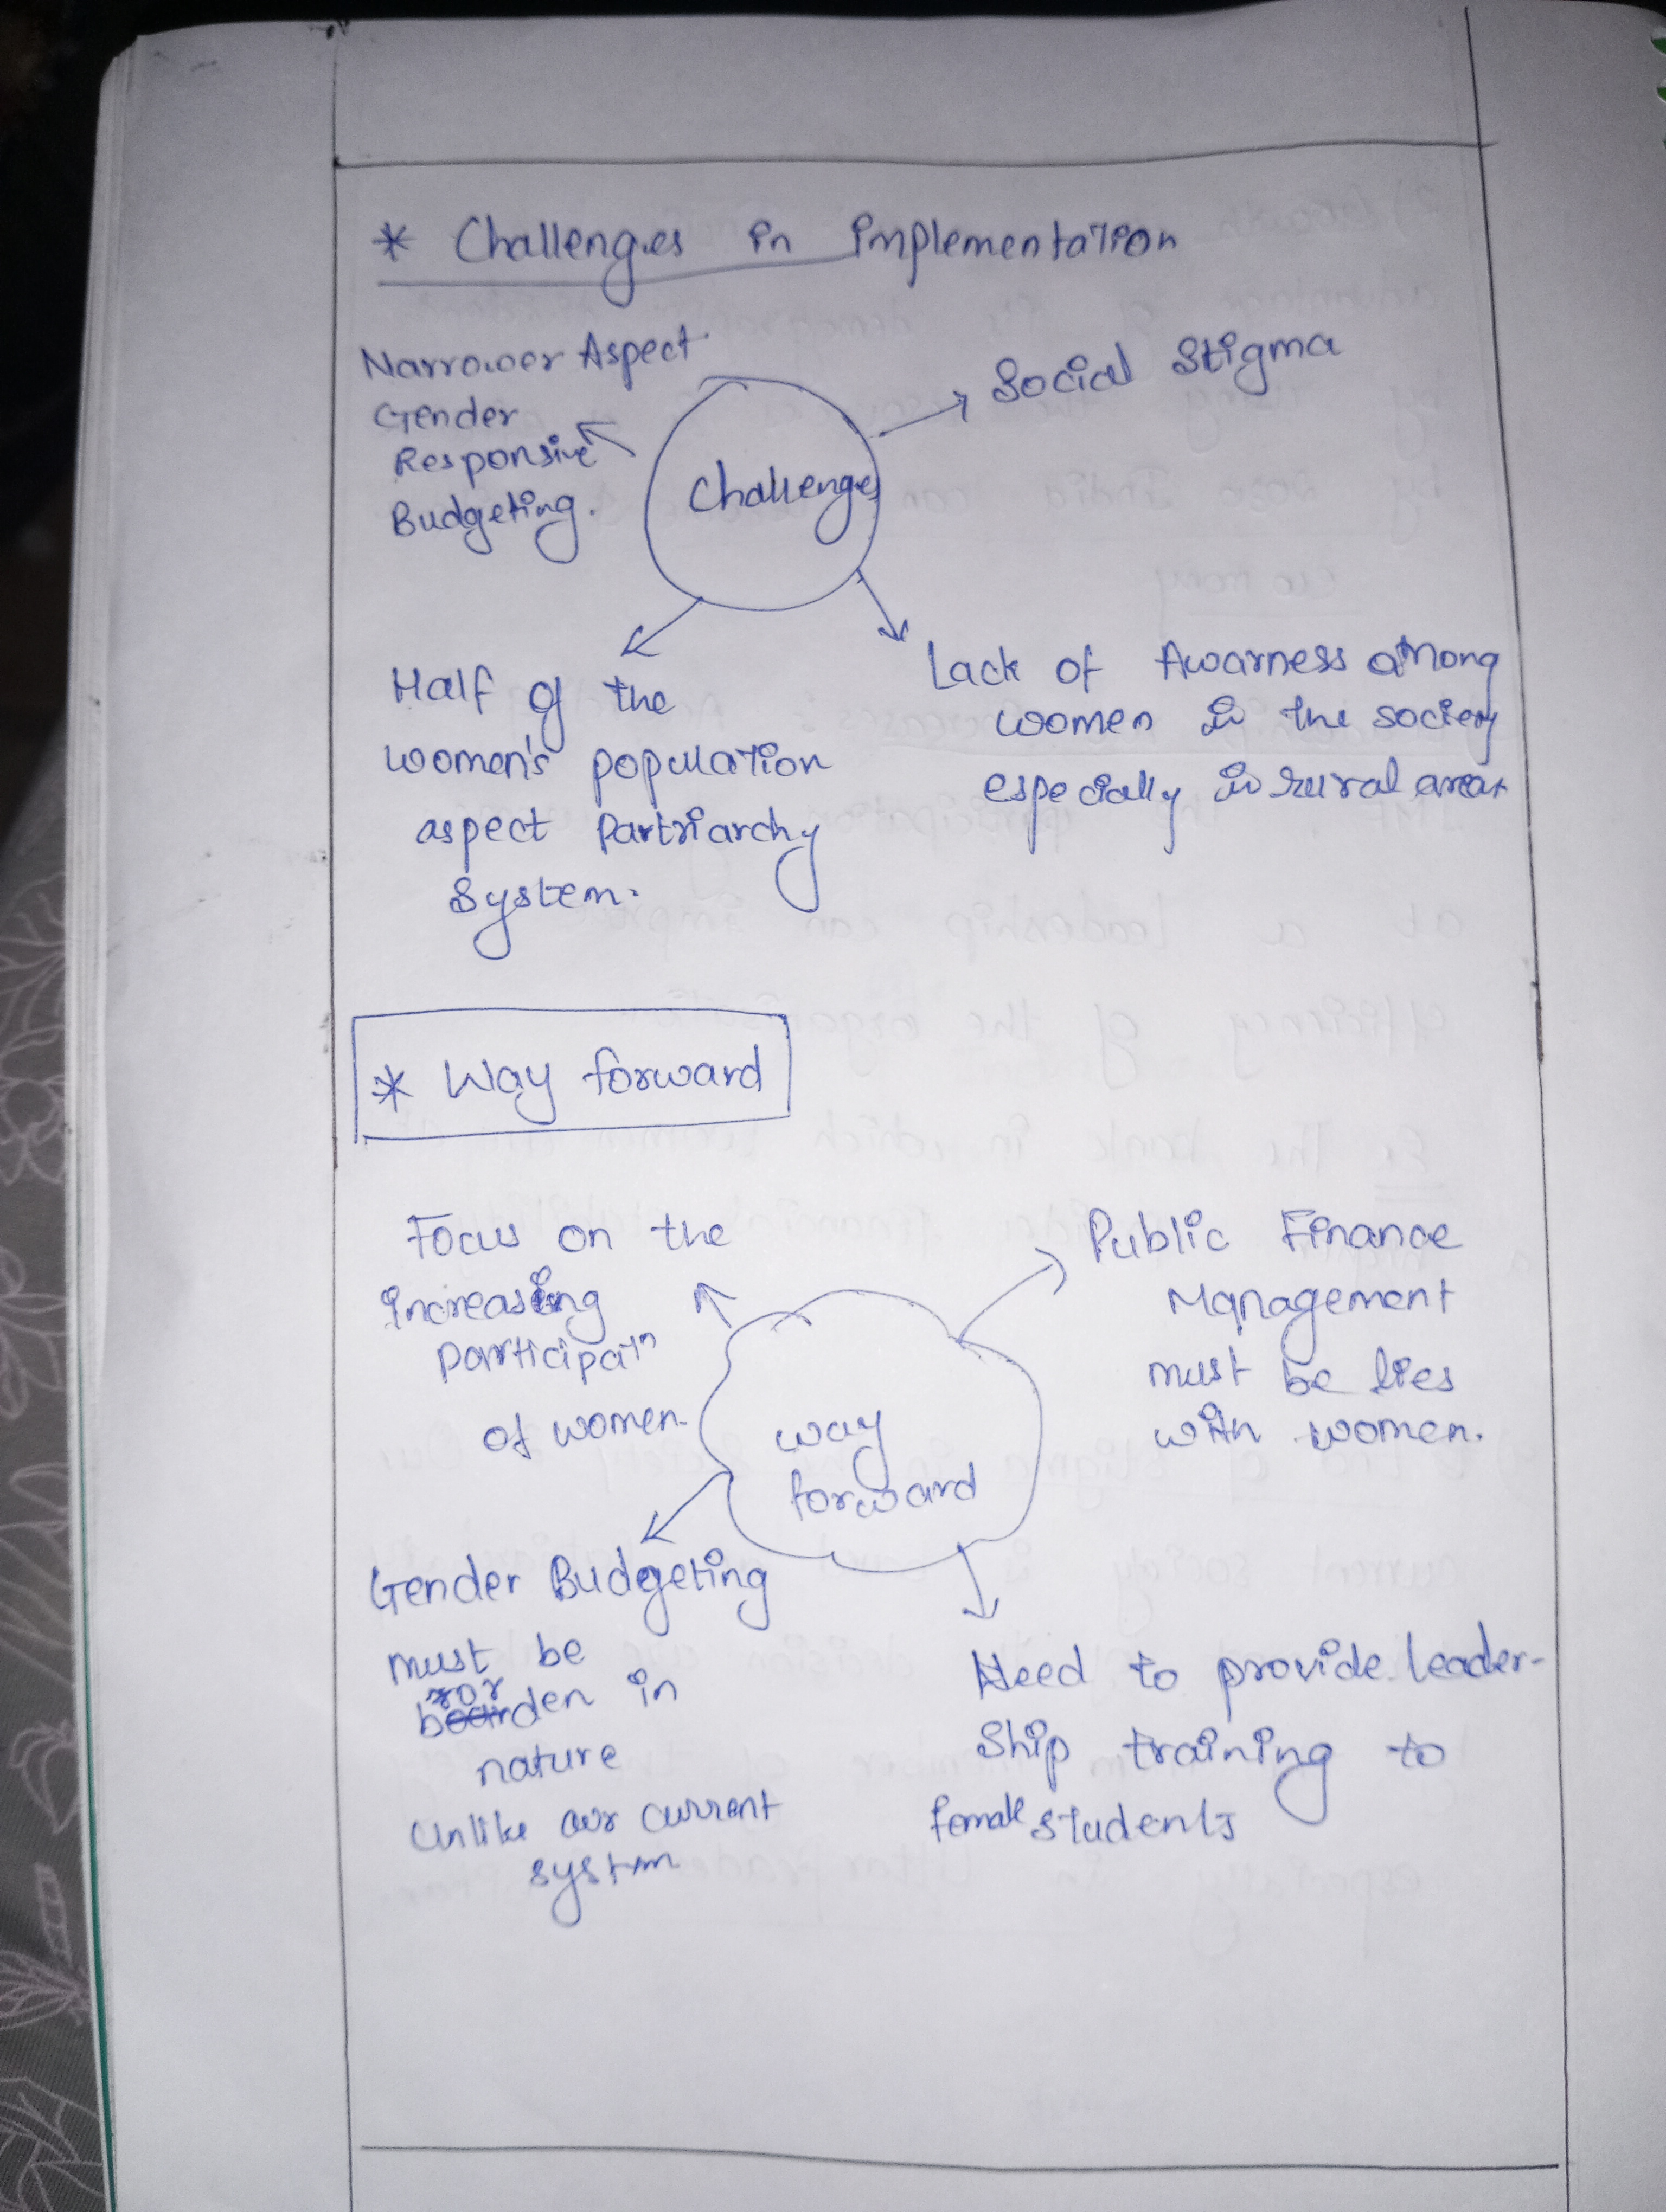 * Challenges in implementation
Narrower Aspect
Gender
Responsive
Budgeting.
Social Stigma
Challenges
Half of the
women's population
aspect Partriarchy
System.
Lack of Awarness among
women in the society
especially in rural areas
* Way forward
Focus on the
increasing
participatn
of women.
Public Finance
Management
must be lies
with women.
way
forward
Gender Budgeting
must be
in
nature
unlike our current
system
Need to provide leader-
Ship training to
female students